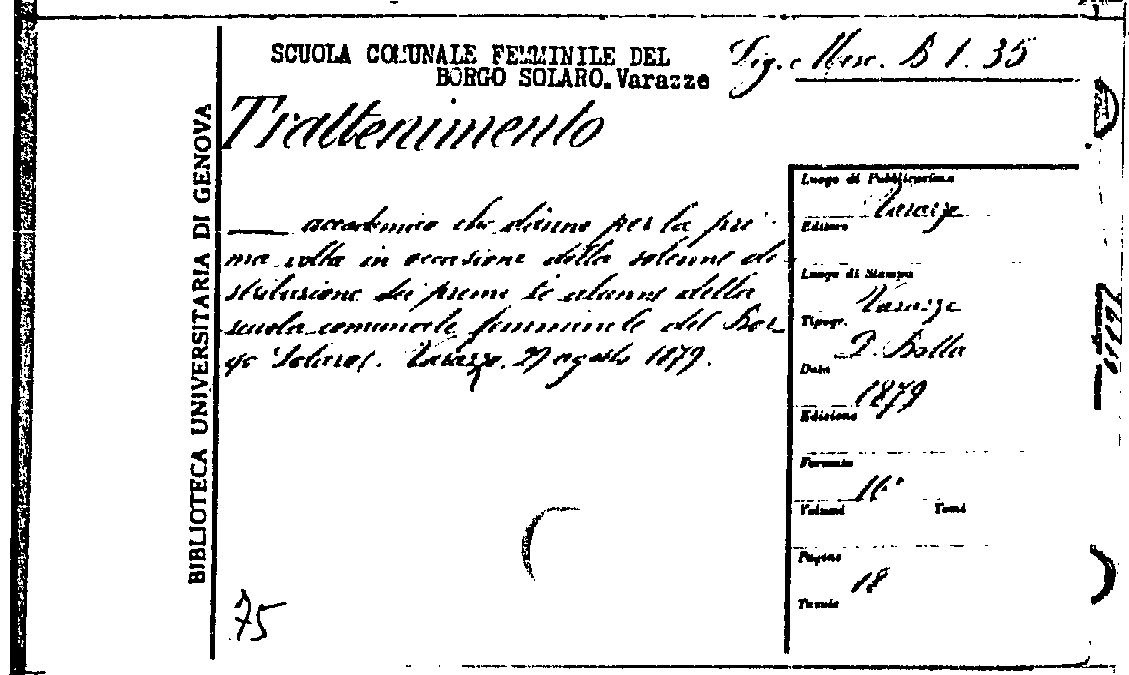 SCUOLA COMUNALE FEMMINILE DEL
BORGO SOLARO. Varazze
Lig. Misc. B 1. 35
Trattenimento
BIBLIOTECA UNIVERSITARIA DI GENOVA
— accademico che dànno per la pri-
ma volta in occasione della solenne di
stribuzione dei premi le alunne della
scuola comunale femminile del Bor
go Solaro. Varazze. 27 agosto 1879.
Luogo di Pubblicazione
Varazze
Editore
Luogo di Stampa
Varazze
Tipogr.
P. Botta
Data
1879
Edizione
Formato
16°
Volumi Tomi
Pagine
18
Tavole
75